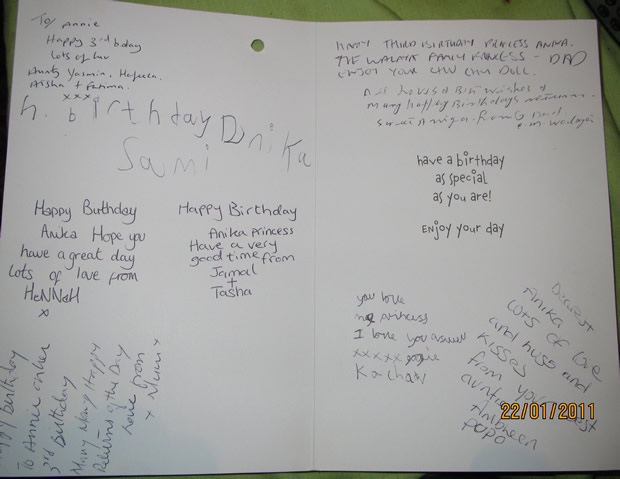 To/ Annie
Happy 3rd bday
Lots of luv
Aunty Yasmin, Hafeeza,
Aisha + Fatima.
xxxx
h. birthday Dnika
Sami
Happy Birthday
Anika Hope you
have a great day
Lots of love from
HeNNaH
x
Happy Birthday
Anika Princess
Have a very
good time from
Jamal
+
Tasha
Happy birthday
To Annie on her
3rd Birthday
Many Many Happy
Returns of the Day
Love from
x
HAPPY THIRD BIRTHDAY PRINCESS ANIKA.
THE FAMILY PRINCESS - DAD
ENJOY YOUR CHU CHU DOLL.
loves & Best wishes &
Many happy Birthdays
Sweet Aniqa. From G Dad
have a birthday
as special
as you are!
Enjoy your day
you love
princess
I love you
xxxxx
Dearest
Anika
Lots of love
and hugs and
kisses
from your
auntie
Ambreen
popo
22/01/2011